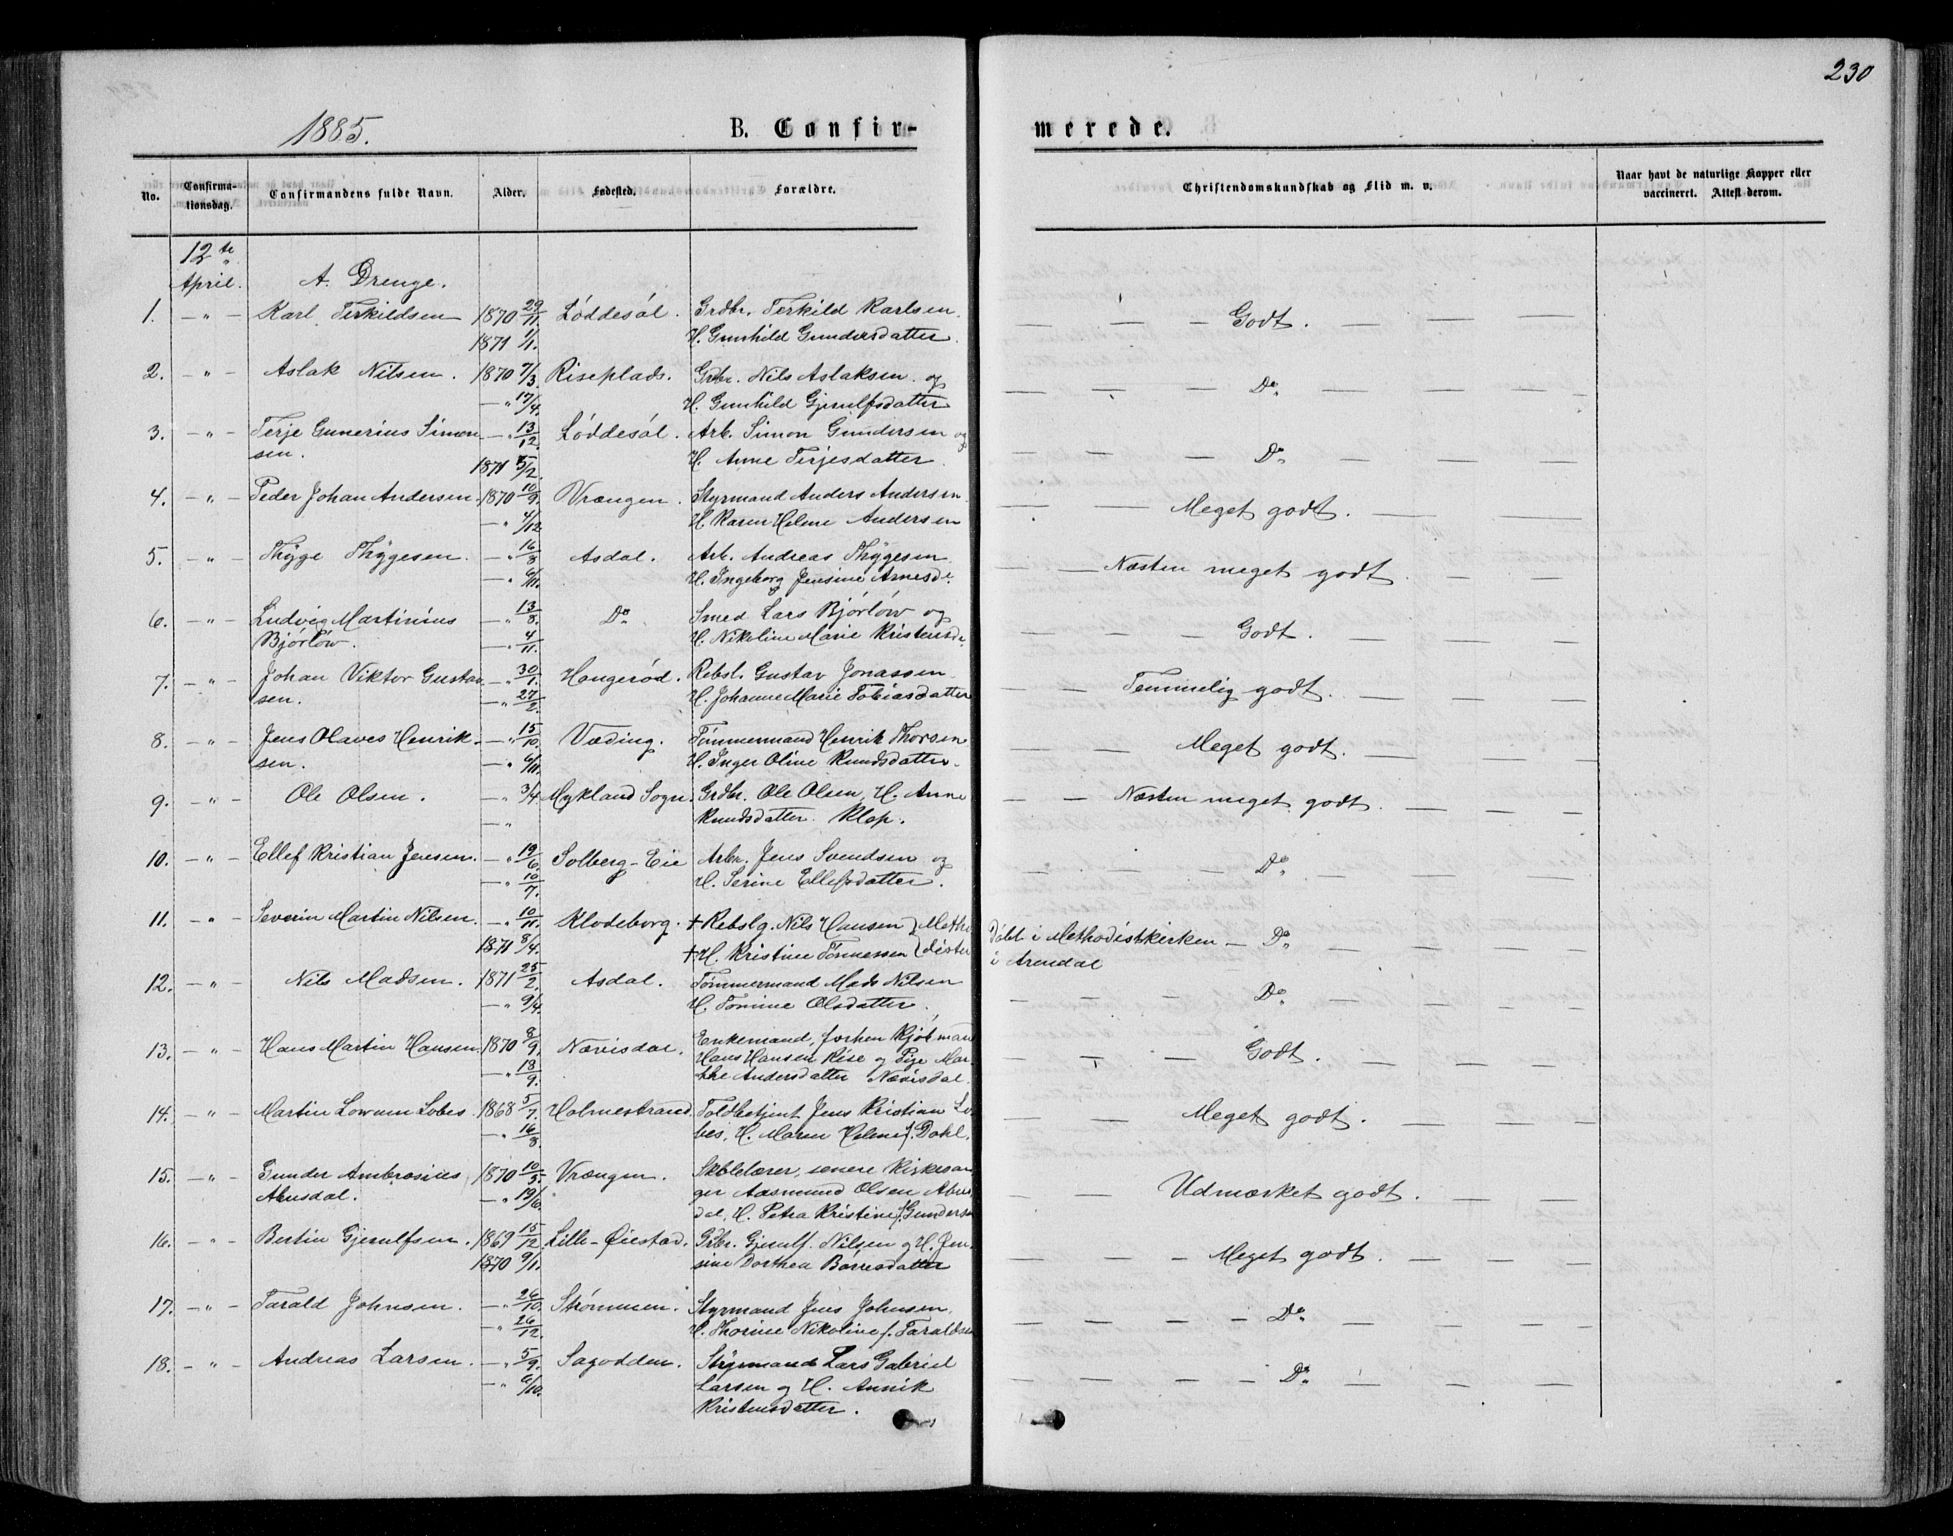 230
1885.
B. Confir-
merede.
No.
Confirma-
tionsdag.
Confirmandens fulde Navn.
Alder.
Fødested.
Forældre.
Christendomskundskab og Flid m. v.
Naar havt de naturlige Kopper eller
vaccineret. Attest derom.
12te
April.
A. Drenge.
1. – " – Karl Terkildsen 1870 29/11. Løddesøl. Grdbr. Terkild Karlsen — — — Godt. — — —
1871 1/1. H. Gunhild Gundersdatter.
2. – " – Aslak Nilsen. 1870 7/3. Riseplads. Grbr. Nils Aslaksen og — — — Do — — —
– " 17/4. H. Gunhild Gjerulfsdatter
3. – " – Terje Gunerius Simon – " 13/12. Løddesøl. Arb. Simon Gundersen og — — — Do — — —
sen. 1871 5/2. H. Anne Terjesdatter.
4. – " – Peder Johan Andersen. 1870 10/9. Vrængen. Styrmand Anders Andersen — — Meget godt. — — —
– " 4/12. H. Karen Helene Andersen
5. – " – Thyge Thygesen. – " 16/8. Asdal. Arb. Andreas Thygesen — — Næsten meget godt. — — —
– " 6/11. H. Ingeborg Jensine Arnesdr.
6. – " – Ludvig Martinius – " 13/8. Do Smed Lars Bjørløw og — — — Godt. — — —
Bjørløw. – " 4/11. H. Nikoline Marie Kristensdr.
7. – " – Johan Viktor Gustav – " 30/1. Haugerød. Rebsl. Gustav Jonassen — — Temmelig godt. — — —
sen. – " 27/2. H. Johanne Marie Tobiasdatter
8. – " – Jens Olaves Henrik – " 15/10. Væding. Tømmermand Henrik Thorsen — — — Meget godt. — — —
sen. – " 6/11. H. Inger Oline Knudsdatter.
9. – " – Ole Olsen. – " 3/4 Mykland Sogn. Grdbr. Ole Olsen, H. Anne — — Næsten meget godt. — — —
– " Knudsdatter. Klep.
10. – " – Ellef Kristian Jensen. – " 19/6. Solberg-Eie Arbr. Jens Svendsen og — — — Do — — —
– " 10/7. H. Serine Ellefsdatter.
11. " – Severin Martin Nilsen. – " 10/11. Klodeborg. + Rebslg. Nils Hansen } Metho Døbt i Methodistkirken – Do — — —
1871 8/4. + H. Kristine Tønnessen } dister i Arendal
12. – " – Nils Madsen. 1871 25/2. Asdal. Tømmermand Mads Nilsen — — — Do — — —
– " 9/4. H. Tomine Olsdatter.
13. – " – Hans Martin Hansen. 1870 8/9. Nævisdal. Enkemand, forhen Kjøbman — — — Godt. — — —
– " 18/9. Hans Hansen Rise og Pige Mar-
the Andersdatter Nævisdal.
14. – " – Martin Lobes 1868 5/7. Holmestrand. Toldbetjent Jens Kristian Lo — — — Meget godt. — — —
– " 16/8. bes, H. Maren Helene f. Dahl.
15. – " – Gunder Ambrosius 1870 10/5. Vrængen. Skolelærer, senere Kirkesan — — Udmærket godt. — — —
– " 19/6. ger Aasmund Olsen
dal, H. Petra Kristine f. Gunderse
16. – " – Bertin Gjerulfsen. 1869 15/12. Lille-Øiestad. Grbr. Gjerulf Nilsen og H. Jen- — — — Meget godt. — — —
1870 9/1. sine Dorthea Børresdatter
17. – " – Tarald Johnsen. – " 26/10. Strømmen. Styrmand Jens Johnsen, — — — Do — — —
– " 26/12. H. Thorine Nikoline f. Taraldsen
18. – " – Andreas Larsen. – " 5/9. Sagodden. Styrmand Lars Gabriel — — — Do — — —
– " 6/10. Larsen og H. Annik
Kristensdatter.